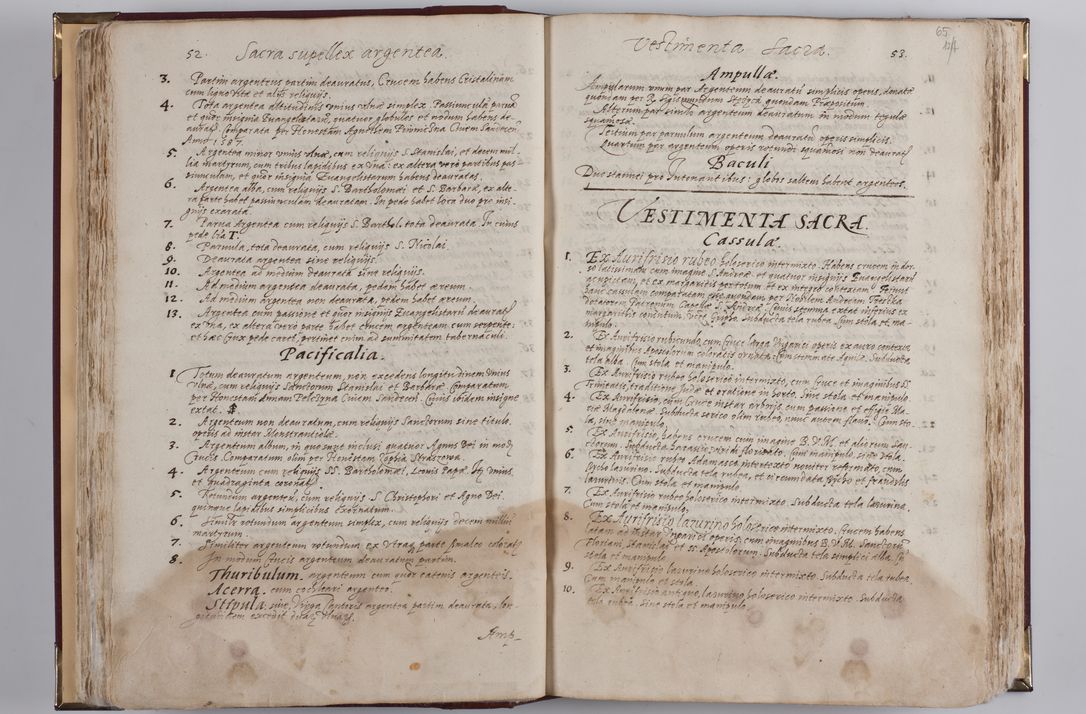 52. Sacra supellex argentea.
3. Partim argenteus partim deauratus, Crucem habens Cristalinam
cum ligno vitæ et alijs reliquijs.
4. Tota argentea altitudinis unius ulnæ simplex. Passiunculâ parua
et quor insignia Euangelistarũ, quatuor globulos et nodum habens de-
auratos. Comparata per Honestam Agnethem Ciuem Sandecen̄
Anno 1597.
5. Argentea minor unius ulnæ, cum reliquijs S. Stanislai, et decem mil-
lia martyrum, cum tribus lapidibus ex una: ex altera verò partibus pas
siunculam, et quor insignia Euangelistarum habens deauratas.
6. Argentea alba, cum reliquijs S. Bartholomæi: et S. Barbaræ, ex alte-
ra parte habet passiunculam deauratam. In pede habet loca duo pro insi-
gnijs exarata.
7. Parua Argentea cum reliquijs S. Barthol. tota deaurata. In cuius
pede T.
8. Paruula, tota deaurata, cum reliquijs S. Nicolai.
9. Deaurata argentea sine reliquijs.
10. Argentea ad medium deaurata sine reliquijs.
11. Ad medium argentea deaurata, pedem habet æreum.
12. Ad medium argentea non deaurata, pedem habet æreum.
13. Argentea cum passione et quor insignijs Euangelistarũ deaurat
ex una, ex altera verò parte habet crucem argenteam cum serpente:
et hæc Crux pede caret, pertinet enim ad summitatem tabernaculi.
Pacificalia.
1 Totum deauratum argenteum, non excedens longitudinem unius
ulnæ, cum reliquijs Sanctorum Stanislai et Barbaræ Comparatum
per Honestam Annam Ciuem Sandecen̄. Cuius ibidem insigne
extat.
2. Argenteum non deauratum, cum reliquijs Sanctorum sine titulo.
operis ad instar Monstrantiolæ.
3. Argenteum album, in quo sunt inclusi quatuor Agnus Dei in mod
Crucis. Comparatum olim per Honestam Zophia
4. Argenteum cum reliquijs SS. Bartholomæi, Leonis Papæ, unius
et quadraginta coronat
5. Rotundum argenteũ, cum reliquijs S. Christophori et Agno Dei.
quinque lapidibus simplicibus exornatum.
6. Simile rotundum argenteum simplex, cum reliquijs decem milliũ
martyrum.
7. Similiter argenteum rotundum ex utraq parte smalco colorat
8. In modum Crucis argenteum deauratum partim.
Thuribulum. argenteum cum quor catenis argenteis.
Acerra. cum cochleari argenteo.
Stipula siue, Virga Cantoris argentea partim deaurata, lon-
gitudinem excedit ulnarũ.
Amp-
Vestimenta Sacra. 53.
65
Ampullæ.
Ampularum unum par Argenteum deauratũ simplicis operis, donatũ
quondam per R. quondam Præpositum.
Alterum par simile argenteum deauratum in modum
squamosæ.
Tertium par paruulum argenteum deauratũ operis simplicis.
Quartum par argenteum operis rotundi squamosi non deaurat
Baculi
Duo stannei pro Intonantibus: globos saltem habent argenteos.
VESTIMENTA SACRA.
Cassulæ.
1. Ex Aurifrisio rubeo holoserico intermixto. Habens crucem in dor-
so latissimam cum imagine S. Andreæ et quatuor insignijs Euangelistarũ
acupictam, et ex margaritis partotum et ex integro contextam. Primus
hanc casulam comparatam esse quondam per Nobilem Andream
decanorem Patronum Capellæ S. Andreæ. Cuius stemma extat inferius ex
margaritis contextum. Subducta tela rubea. Cum stola et ma-
nipulo.
2. Ex Aurifrisio rubicundo, cum Cruce larga operis ex auro contexta
et imaginibus Apostolorum coloratis ornata. Cum stemmate Aquilæ. Subducta
tela alba. Cum stola et manipulo.
3. Ex Aurifrisio rubeo holoserico intermixto, cum Cruce et imaginibus SS.
Trinitatis, traditione Iudæ et oratione in horto. Sine stola et manipulo.
4. Ex Aurifrisio, cum Cruce instar arboris, cum passione et effigie Ma-
riæ Magdalenæ. Subducta serico olim rubeo, nunc autem flauo. Cum sto-
la, sine manipulo.
5. Ex Aurifrisio, habens crucem cum imagine B. V. M. et aliorum San-
ctorum. Subducta viridi florisato. Cum manipulo. sine stola.
6. Ex Aurifrisio rubeo Adamasco intertexto nouiter reformato, cum
lazurino. Subducta tela rubea, et circumdata et frandzlis
lazurinis. Cum stola et manipulo.
7. Ex Aurifrisio rubeo holoserico intermixto. Subducta tela lazurina.
Cum stola et manipulo.
8. Ex Aurifrisio lazurino holoserico intermixto. Crucem habens
latam ad instar operis: cum imaginibus B. V. M. Sanctorũ
Floriani, Stanislai et SS. Apostolorum. Subducta tela simplici alba.
stola et manipulo.
9. Ex Aurifrisio lazurino holoserico intermixto. Subducta tela rubea.
Cum manipulo et stola.
10. Ex Aurifrisio antiquo, lazurino holoserico intermixto. Subducta
tela rubea. Sine stola et manipulo.